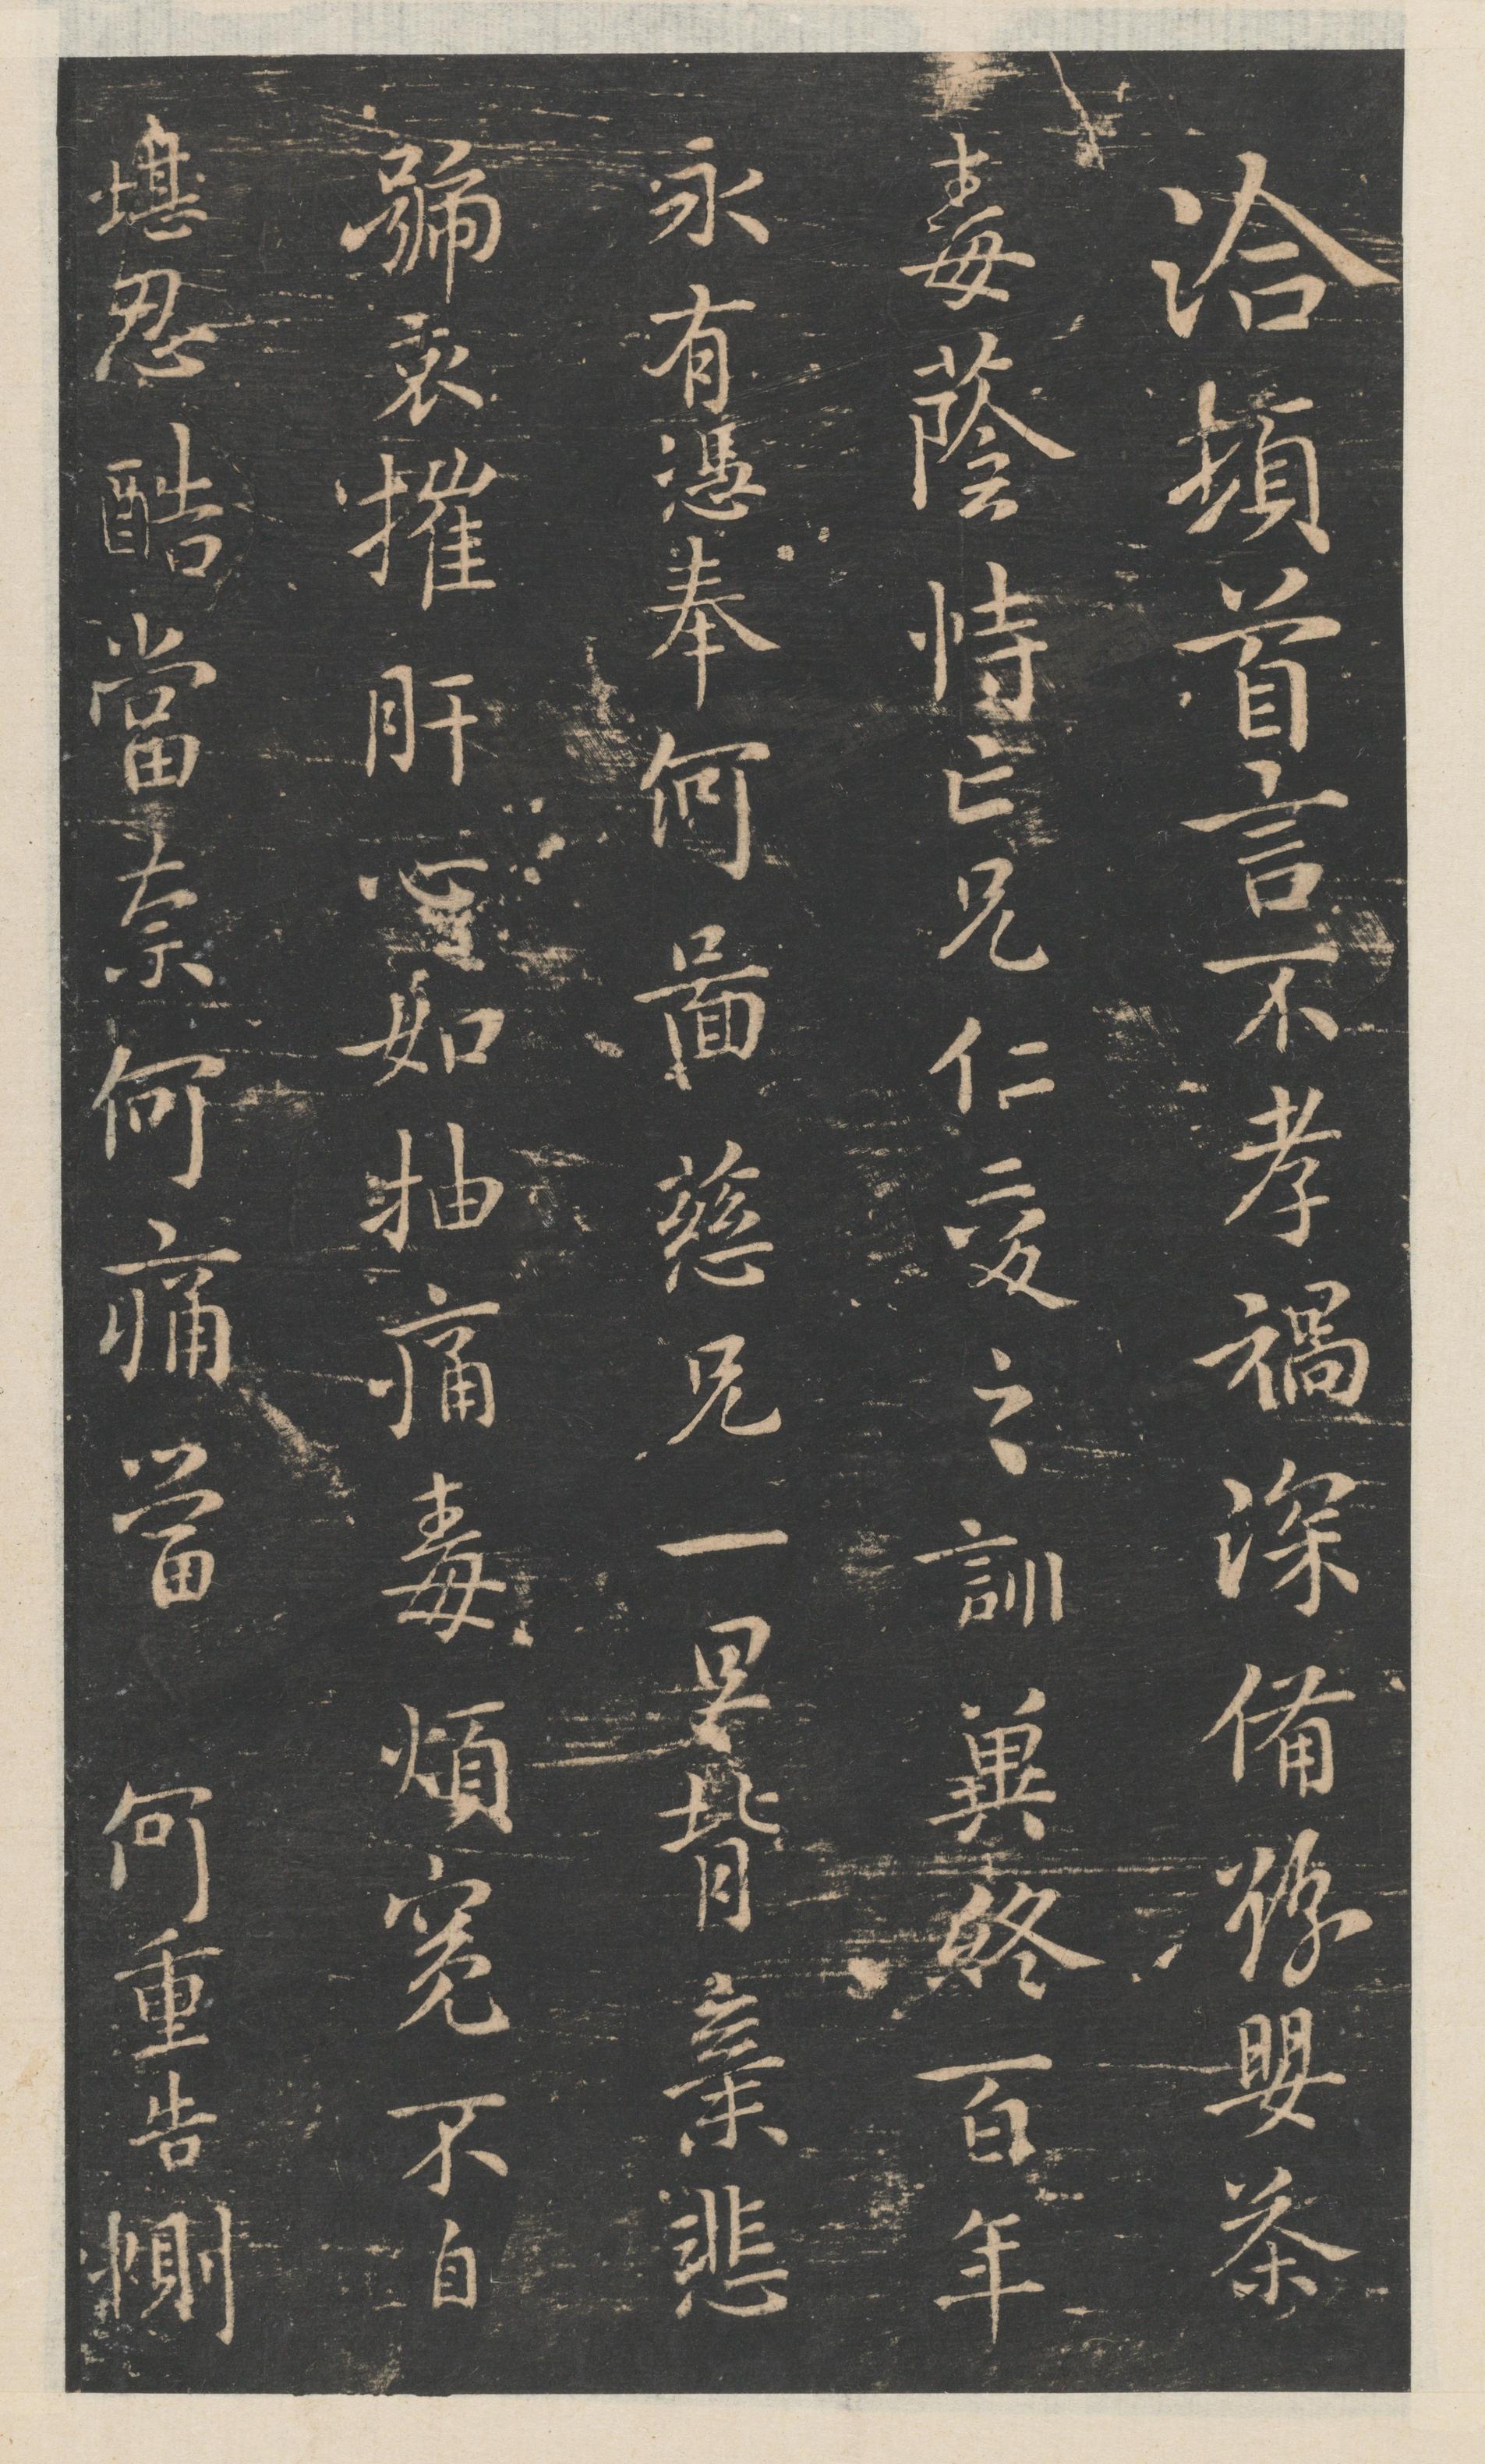 洽頓首言不孝禍深備豫嬰荼
毒蔭恃亡兄仁愛之訓冀終百年
永有憑奉何圖慈兄一旦背棄悲
號哀摧肝心如抽痛毒煩冤不自
堪忍酷當奈何痛當何重告惻